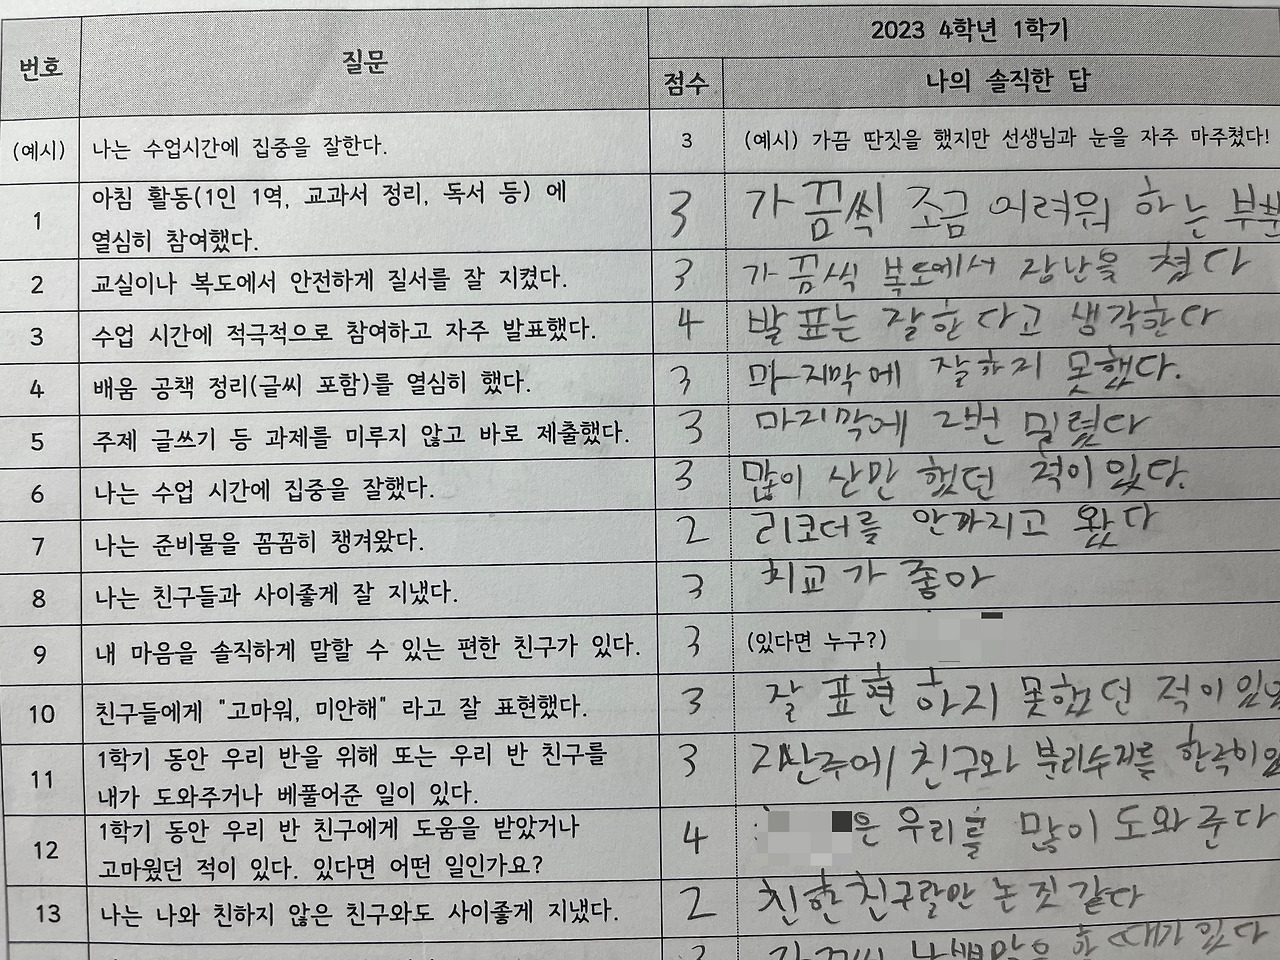 번호 질문 2023 4학년 1학기
점수 나의 솔직한 답
(예시) 나는 수업시간에 집중을 잘한다. 3 (예시) 가끔 딴짓을 했지만 선생님과 눈을 자주 마주쳤다!
1 아침 활동(1인 1역, 교과서 정리, 독서 등) 에 3 가끔씩 조금 어려워 하는 부분
열심히 참여했다.
2 교실이나 복도에서 안전하게 질서를 잘 지켰다. 3 가끔씩 복도에서 장난을 쳤다
3 수업 시간에 적극적으로 참여하고 자주 발표했다. 4 발표는 잘한다고 생각한다
4 배움 공책 정리(글씨 포함)를 열심히 했다. 3 마지막에 잘하지 못했다.
5 주제 글쓰기 등 과제를 미루지 않고 바로 제출했다. 3 마지막에 2번 밀렸다
6 나는 수업 시간에 집중을 잘했다. 3 많이 산만 했던 적이 있다.
7 나는 준비물을 꼼꼼히 챙겨왔다. 2 리코더를 안까지고 왔다
8 나는 친구들과 사이좋게 잘 지냈다. 3 치교가 좋아
9 내 마음을 솔직하게 말할 수 있는 편한 친구가 있다. 3 (있다면 누구?)
10 친구들에게 "고마워, 미안해" 라고 잘 표현했다. 3 잘 표현하지 못했던 적이
11 1학기 동안 우리 반을 위해 또는 우리 반 친구를 3 지난주에 친구와 분리수지를
내가 도와주거나 베풀어준 일이 있다.
12 1학기 동안 우리 반 친구에게 도움을 받았거나 4 은 우리를 많이 도와준다
고마웠던 적이 있다. 있다면 어떤 일인가요?
13 나는 나와 친하지 않은 친구와도 사이좋게 지냈다. 2 친한친구랑만 논것같다